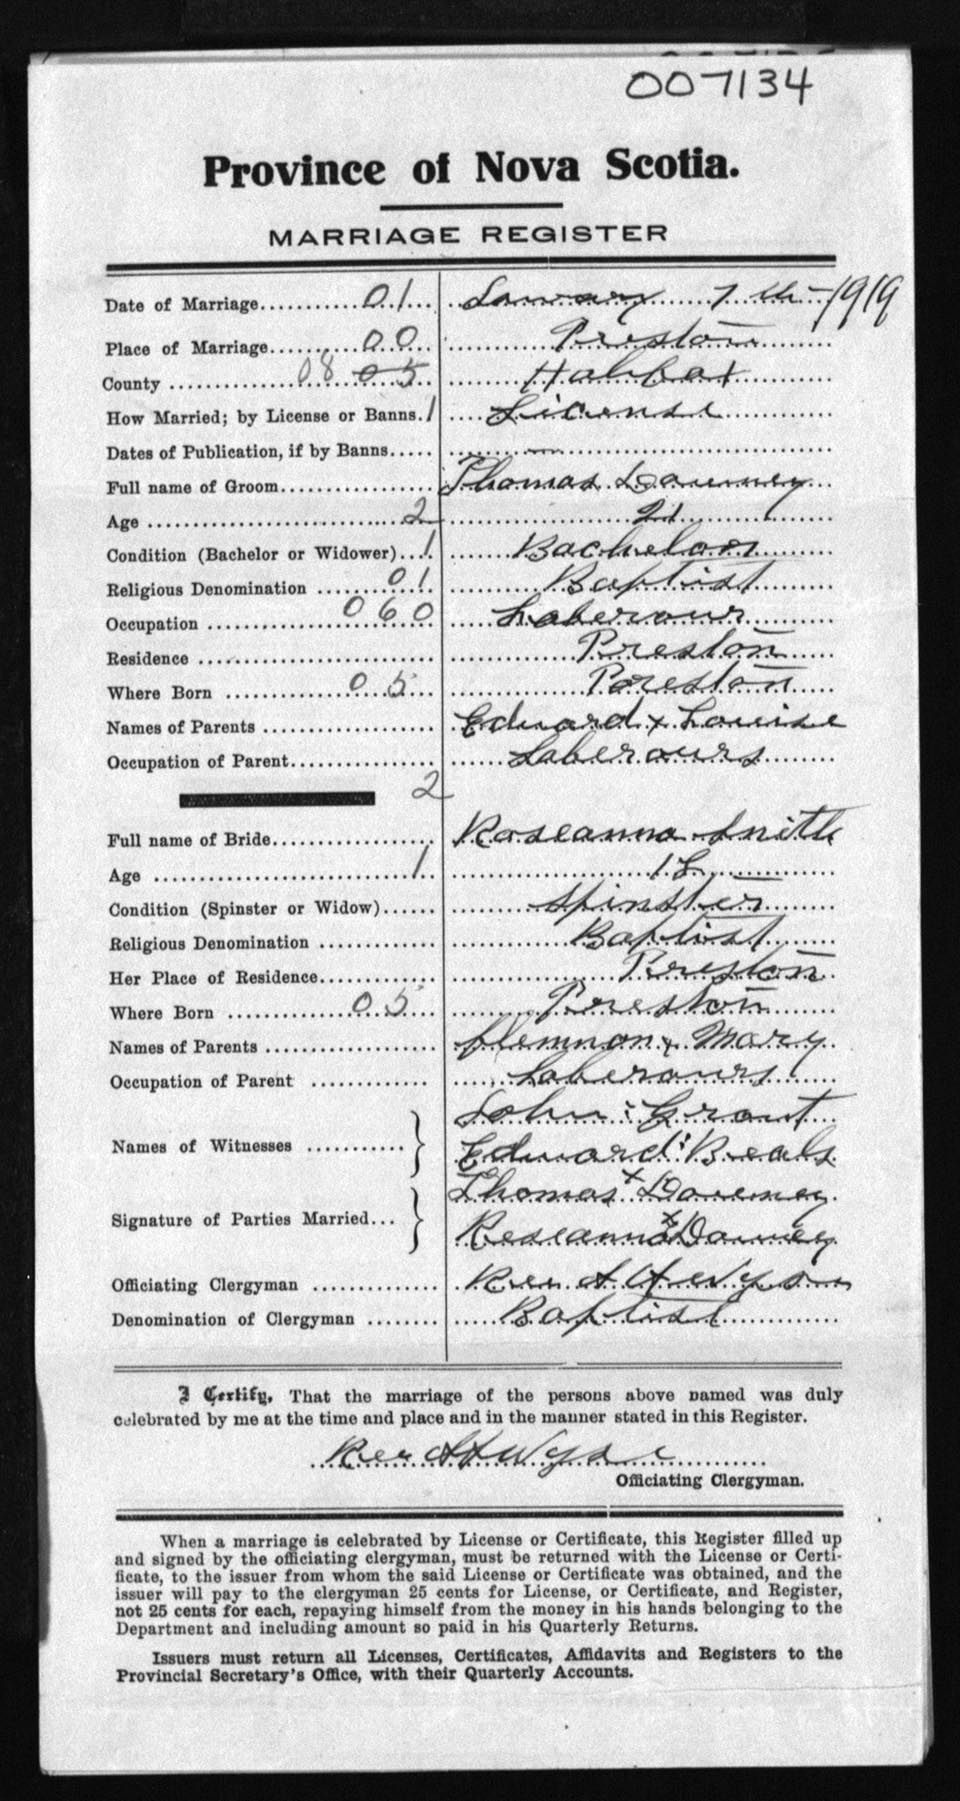 007134
Province of Nova Scotia.
MARRIAGE REGISTER
Date of Marriage 01 January 7th 1919
Place of Marriage 00 Preston
County 08 05 Halifax
How Married; by License or Banns. 1 License
Dates of Publication, if by Banns —
Full name of Groom Thomas Downey
Age 2 21
Condition (Bachelor or Widower) 1 Bachelor
Religious Denomination 01 Baptist
Occupation 060 Laberour
Residence Preston
Where Born 05 Preston
Names of Parents Edward + Louise
Occupation of Parent Laberours
2
Full name of Bride Roseanna Smith
Age 1 18
Condition (Spinster or Widow) Spinster
Religious Denomination Baptist
Her Place of Residence Preston
Where Born 05 Preston
Names of Parents + Mary
Occupation of Parent Laberours
Names of Witnesses John Grant
Edward Beals
Signature of Parties Married Thomas x Downey
Roseanna x Downey
Officiating Clergyman Rev A A Wyse
Denomination of Clergyman Baptist
I Certify, That the marriage of the persons above named was duly
celebrated by me at the time and place and in the manner stated in this Register.
Rev A A Wyse
Officiating Clergyman.
When a marriage is celebrated by License or Certificate, this Register filled up
and signed by the officiating clergyman, must be returned with the License or Certi-
ficate, to the issuer from whom the said License or Certificate was obtained, and the
issuer will pay to the clergyman 25 cents for License, or Certificate, and Register,
not 25 cents for each, repaying himself from the money in his hands belonging to the
Department and including amount so paid in his Quarterly Returns.
Issuers must return all Licenses, Certificates, Affidavits and Registers to the
Provincial Secretary's Office, with their Quarterly Accounts.